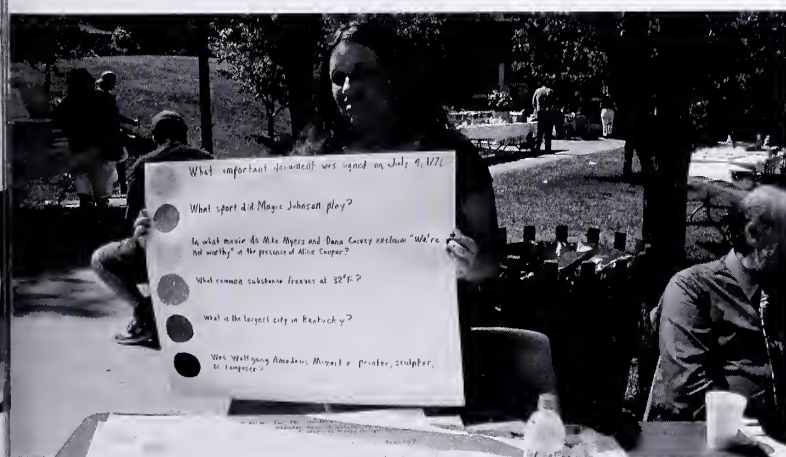 What important document was signed on July 4, 1776?
What sport did Magic Johnson play?
In what movie do Mike Myers and Dana Carvey exclaim "We're
not worthy" in the presence of Alice Cooper?
What common substance freezes at 32°F?
What is the largest city in Kentucky?
Was Wolfgang Amadeus Mozart a painter, sculptor,
or composer?